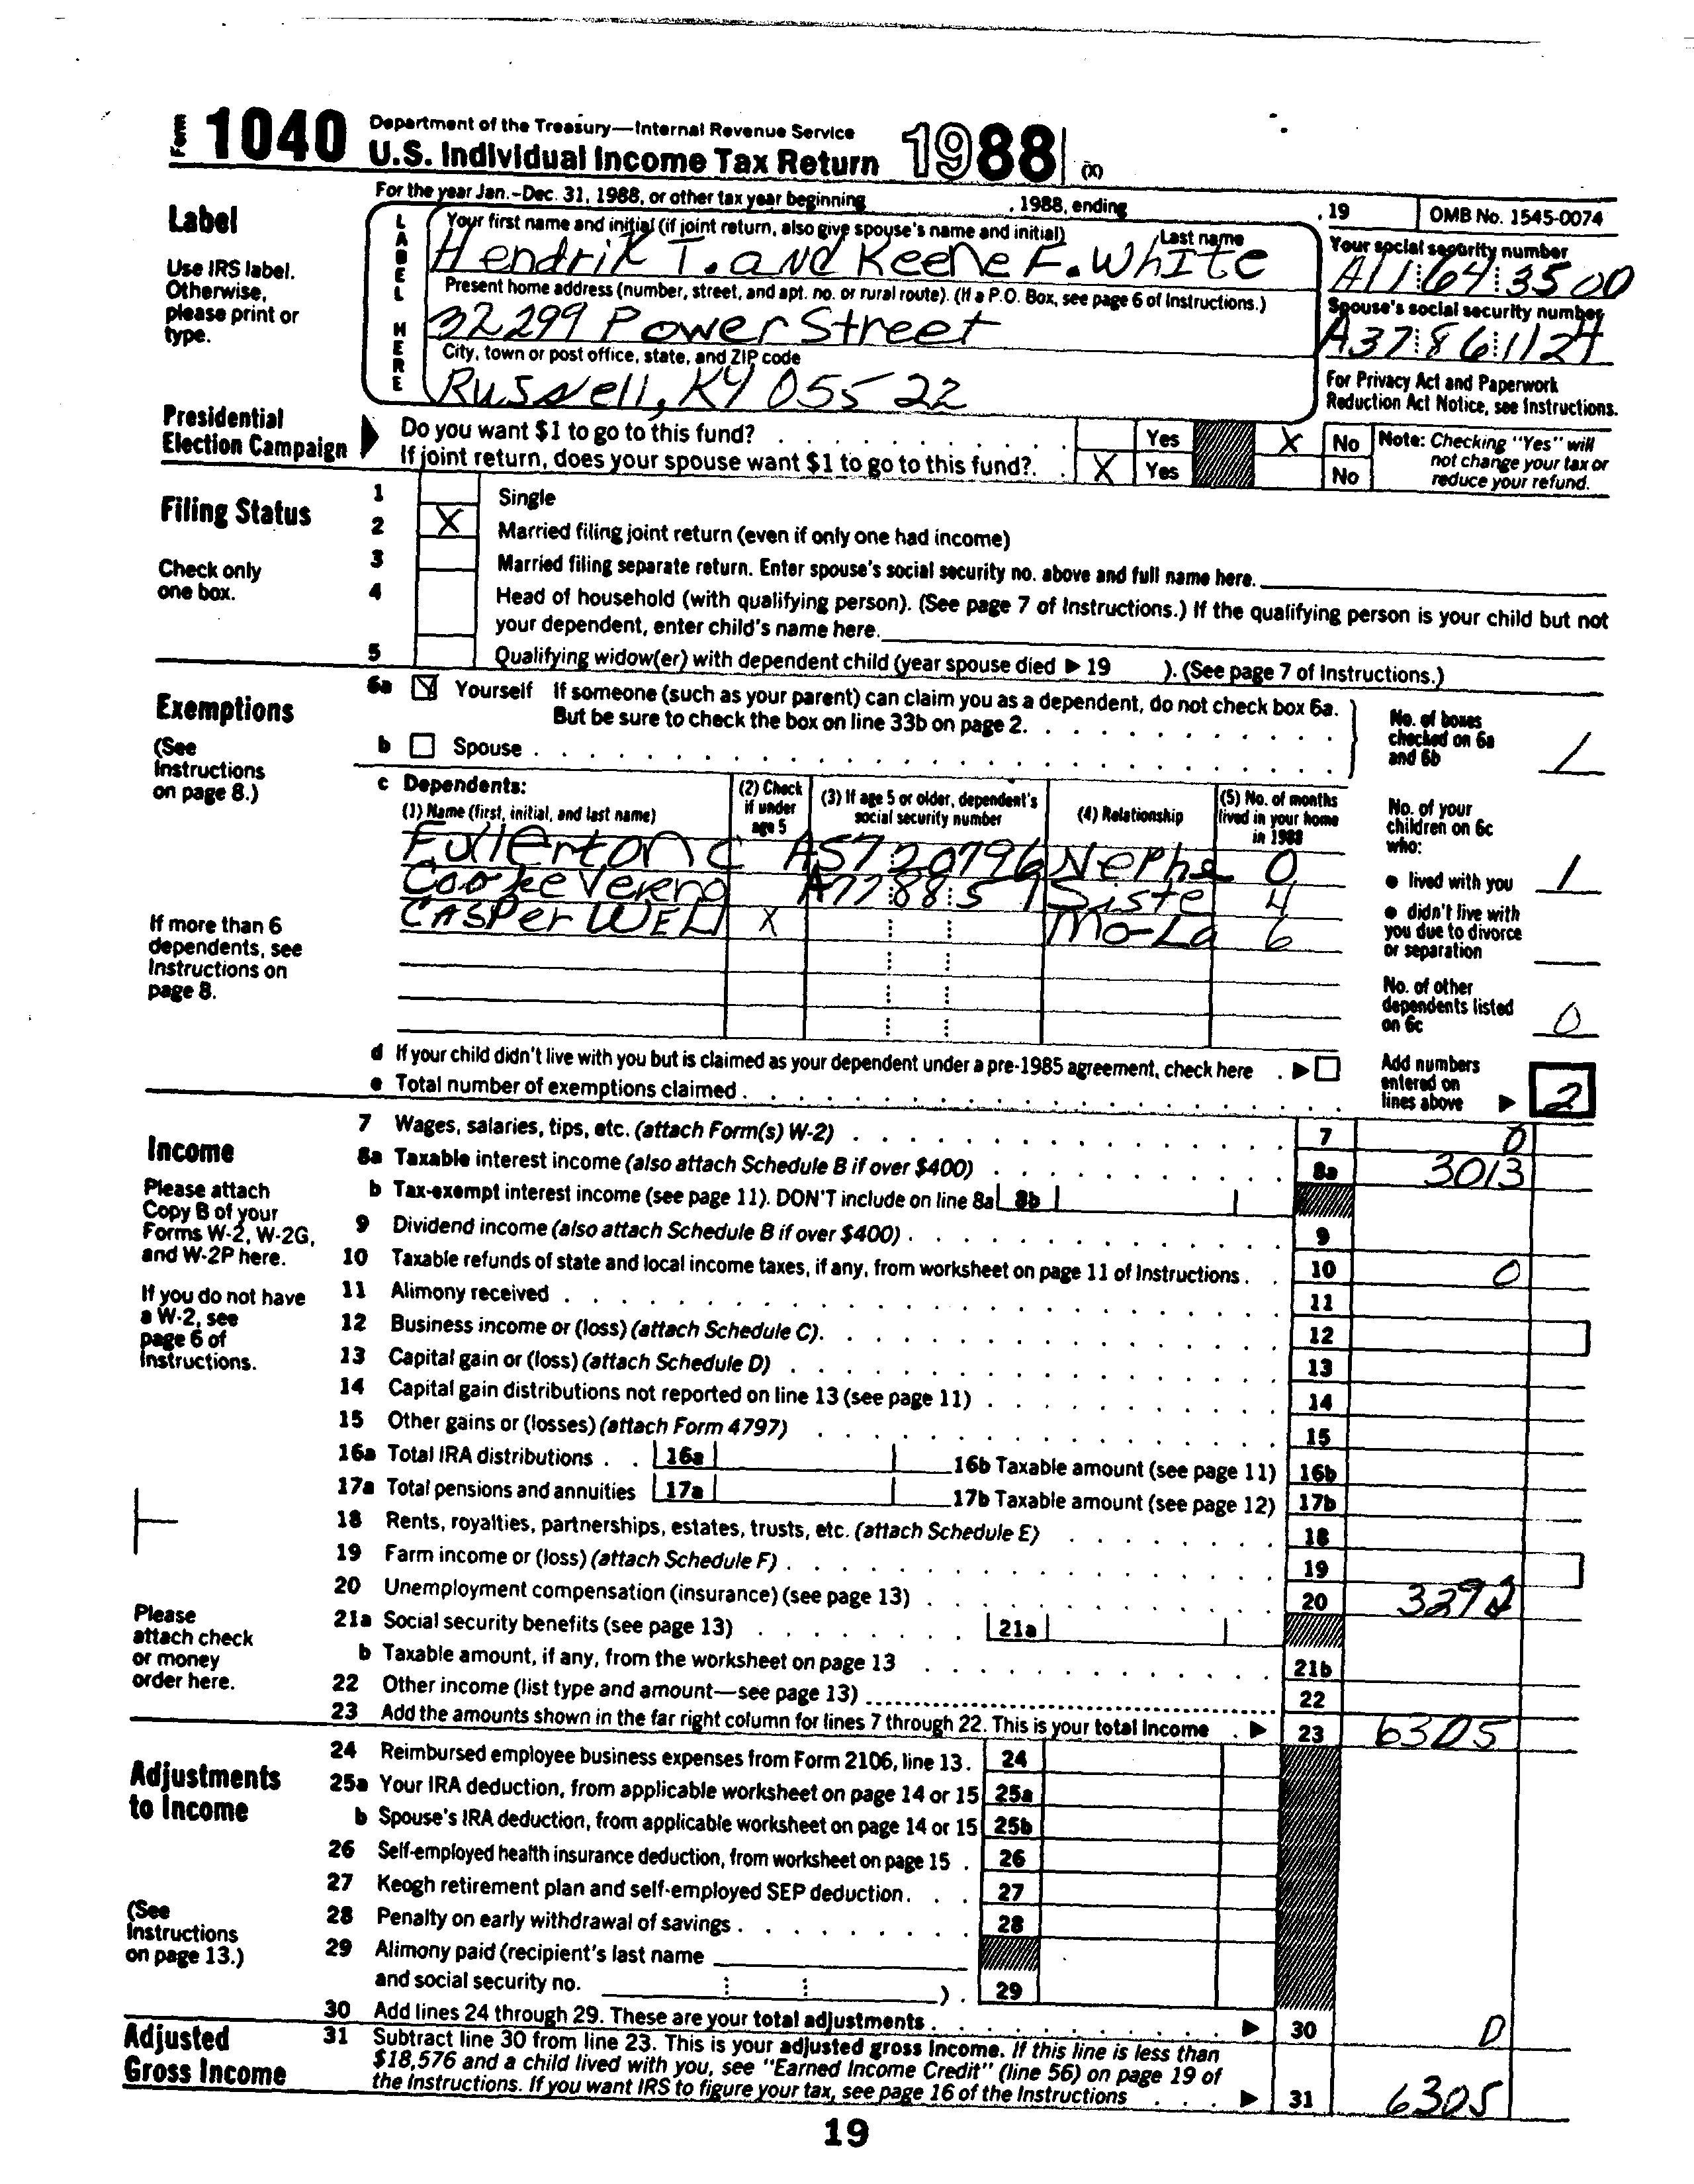 Form 1040 Department of the Treasury—Internal Revenue Service
U.S. Individual Income Tax Return 1988 (X)
For the year Jan.–Dec. 31, 1988, or other tax year beginning , 1988, ending , 19 OMB No. 1545-0074
Label
Use IRS label.
Otherwise,
please print or
type.
LABEL HERE
Your first name and initial (if joint return, also give spouse's name and initial) Last name
Hendrik T. and Keene F. White
Your social security number
A11 64 3500
Present home address (number, street, and apt. no. or rural route). (If a P.O. Box, see page 6 of Instructions.)
32299 Power Street
Spouse's social security number
City, town or post office, state, and ZIP code
Russell, KY 05522
For Privacy Act and Paperwork
Reduction Act Notice, see Instructions.
Presidential
Election Campaign
Do you want $1 to go to this fund? Yes X No
If joint return, does your spouse want $1 to go to this fund? X Yes No
Note: Checking "Yes" will
not change your tax or
reduce your refund.
Filing Status
Check only
one box.
1 Single
2 X Married filing joint return (even if only one had income)
3 Married filing separate return. Enter spouse's social security no. above and full name here.
4 Head of household (with qualifying person). (See page 7 of Instructions.) If the qualifying person is your child but not
your dependent, enter child's name here.
5 Qualifying widow(er) with dependent child (year spouse died ▶ 19 ). (See page 7 of Instructions.)
Exemptions
(See
Instructions
on page 8.)
If more than 6
dependents, see
Instructions on
page 8.
6a Yourself If someone (such as your parent) can claim you as a dependent, do not check box 6a.
But be sure to check the box on line 33b on page 2.
b Spouse
No. of boxes
checked on 6a
and 6b 1
c Dependents:
(1) Name (first, initial, and last name)
(2) Check
if under
age 5
(3) If age 5 or older, dependent's
social security number
(4) Relationship
(5) No. of months
lived in your home
in 1988
Fullerton C A57 20796 Nephe 0
Cooke Verena Siste 4
Casper WELL X Mo-La 6
No. of your
children on 6c
who:
● lived with you 1
● didn't live with
you due to divorce
or separation
No. of other
dependents listed
on 6c 0
d If your child didn't live with you but is claimed as your dependent under a pre-1985 agreement, check here ▶
e Total number of exemptions claimed
Add numbers
entered on
lines above ▶ 2
Income
Please attach
Copy B of your
Forms W-2, W-2G,
and W-2P here.
If you do not have
a W-2, see
page 6 of
Instructions.
Please
attach check
or money
order here.
7 Wages, salaries, tips, etc. (attach Form(s) W-2) 7 0
8a Taxable interest income (also attach Schedule B if over $400) 8a 3013
b Tax-exempt interest income (see page 11). DON'T include on line 8a 8b
9 Dividend income (also attach Schedule B if over $400) 9
10 Taxable refunds of state and local income taxes, if any, from worksheet on page 11 of Instructions 10 0
11 Alimony received 11
12 Business income or (loss) (attach Schedule C) 12
13 Capital gain or (loss) (attach Schedule D) 13
14 Capital gain distributions not reported on line 13 (see page 11) 14
15 Other gains or (losses) (attach Form 4797) 15
16a Total IRA distributions 16a 16b Taxable amount (see page 11) 16b
17a Total pensions and annuities 17a 17b Taxable amount (see page 12) 17b
18 Rents, royalties, partnerships, estates, trusts, etc. (attach Schedule E) 18
19 Farm income or (loss) (attach Schedule F) 19
20 Unemployment compensation (insurance) (see page 13) 20 3292
21a Social security benefits (see page 13) 21a
b Taxable amount, if any, from the worksheet on page 13 21b
22 Other income (list type and amount—see page 13) 22
23 Add the amounts shown in the far right column for lines 7 through 22. This is your total income ▶ 23 6305
Adjustments
to Income
(See
Instructions
on page 13.)
24 Reimbursed employee business expenses from Form 2106, line 13. 24
25a Your IRA deduction, from applicable worksheet on page 14 or 15 25a
b Spouse's IRA deduction, from applicable worksheet on page 14 or 15 25b
26 Self-employed health insurance deduction, from worksheet on page 15 26
27 Keogh retirement plan and self-employed SEP deduction 27
28 Penalty on early withdrawal of savings 28
29 Alimony paid (recipient's last name
and social security no. ) 29
30 Add lines 24 through 29. These are your total adjustments ▶ 30 0
Adjusted
Gross Income
31 Subtract line 30 from line 23. This is your adjusted gross income. If this line is less than
$18,576 and a child lived with you, see "Earned Income Credit" (line 56) on page 19 of
the Instructions. If you want IRS to figure your tax, see page 16 of the Instructions ▶ 31 6305
19